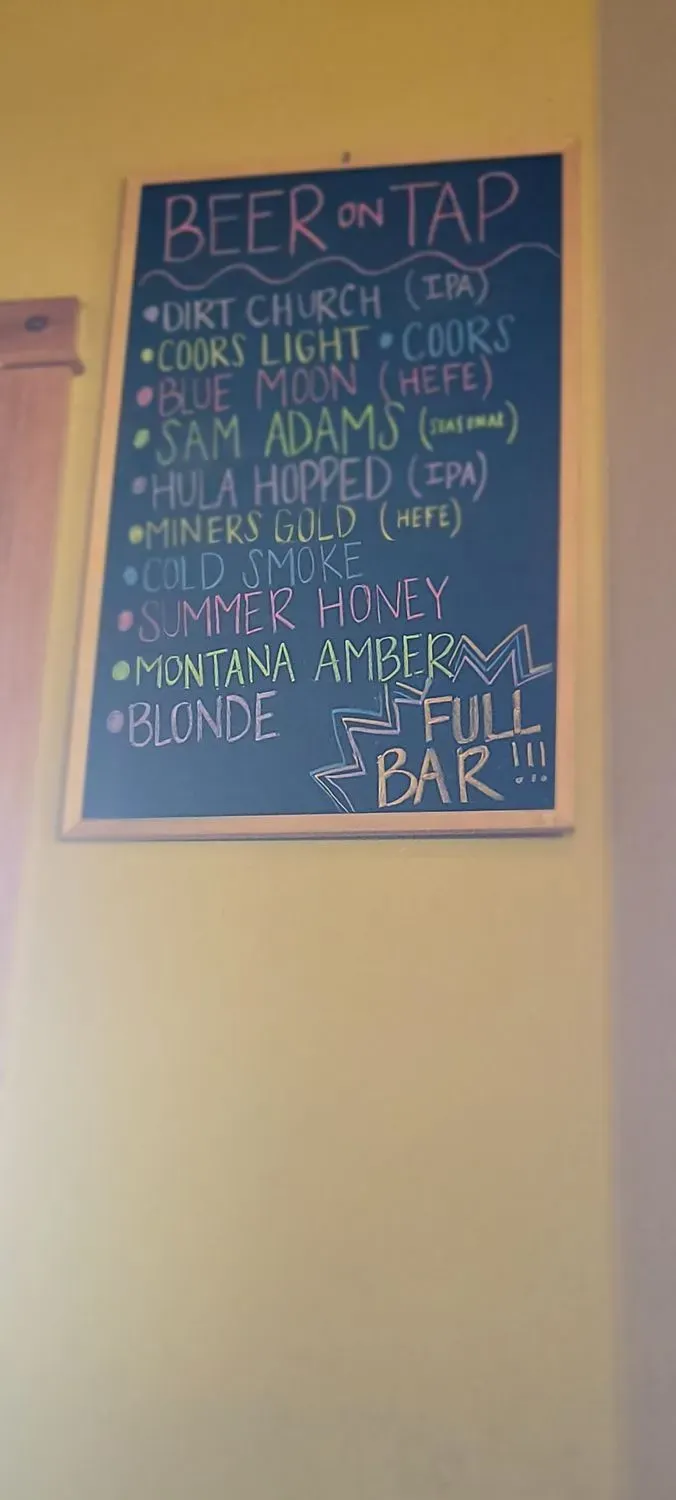 BEER ON TAP
•DIRT CHURCH (IPA)
•COORS LIGHT •COORS
•BLUE MOON (HEFE)
•SAM ADAMS (SEASONAL)
•HULA HOPPED (IPA)
•MINERS GOLD (HEFE)
•COLD SMOKE
•SUMMER HONEY
•MONTANA AMBER
•BLONDE
FULL
BAR!!!